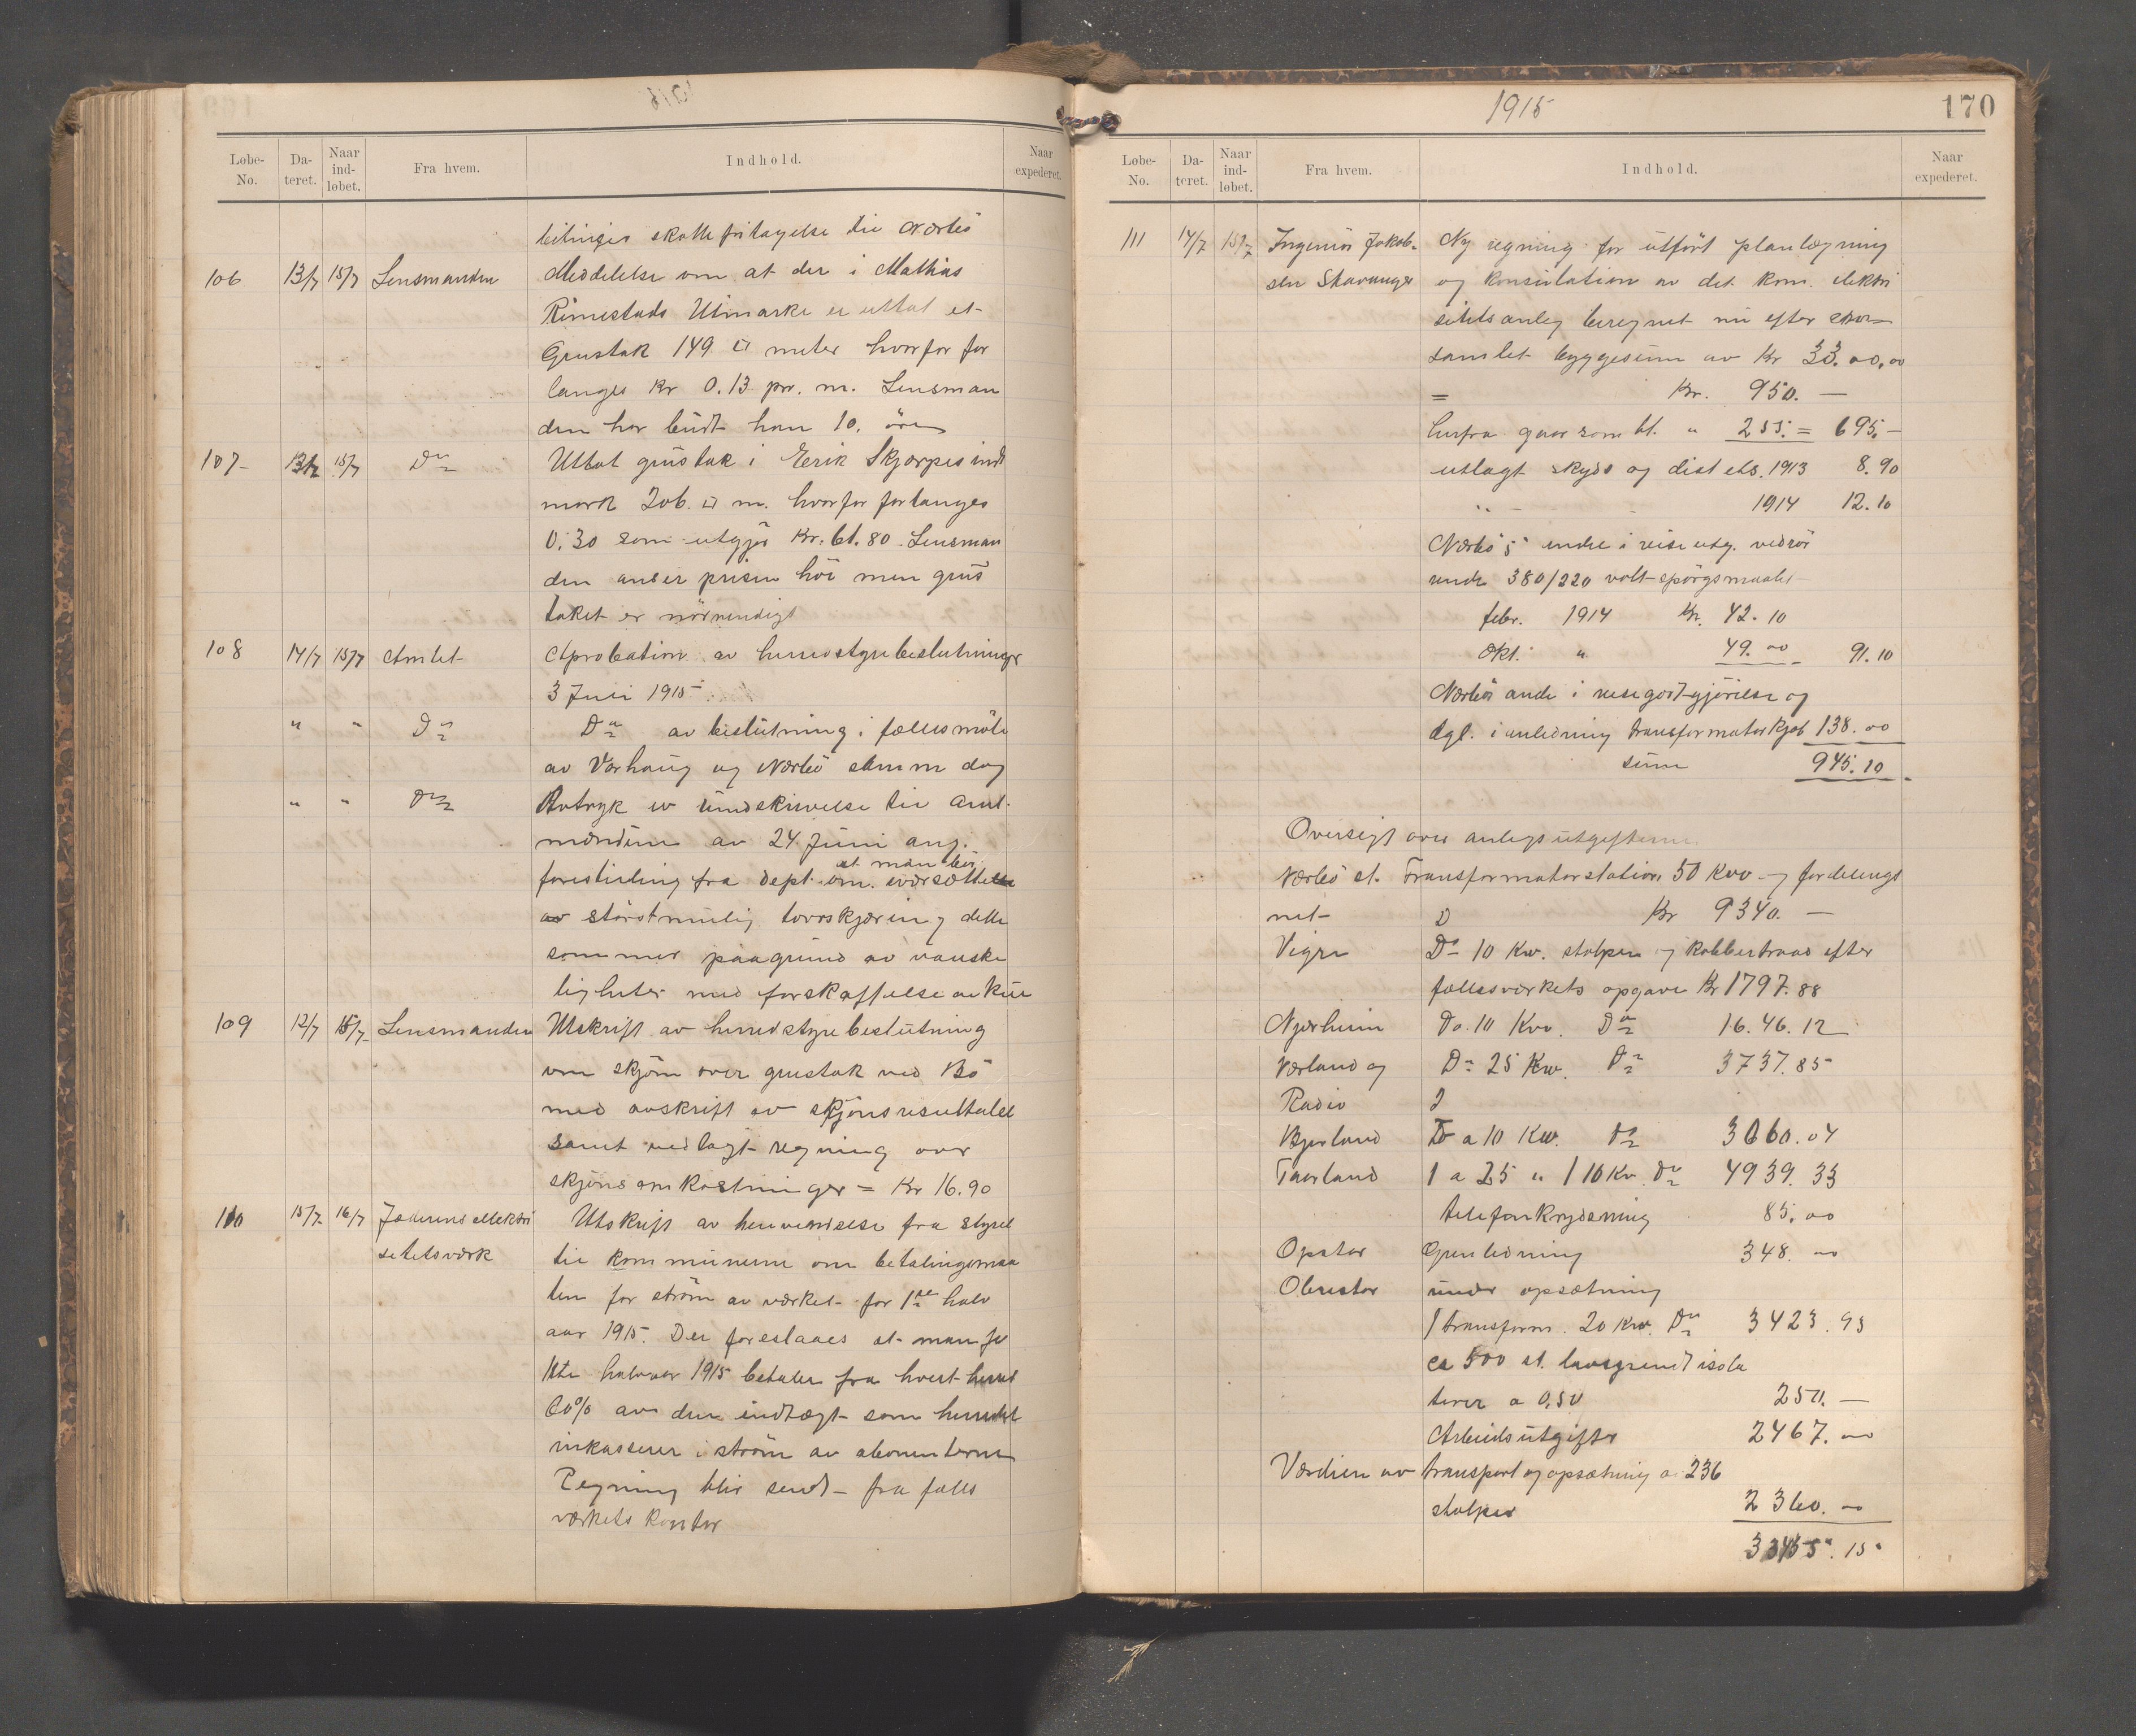 Løbe-No. Da-teret. Naar ind-løbet. Fra hvem. Indhold. Naar expederet.
skattefritagelse til Nærbö
106 13/7 15/7 Lensmanden Meddelelse om at der i Mathias
Rimestads Utmarke er uttat et
Grustak 149 □ meter hvorfor for
langes Kr 0.13 pr. m. Lensman
den har budt ham 10. öre
107 13/7 15/7 Do Uttat grustak i Eerik Skjærpes ind
mark 206. □ m. hvorfor forlanges
0.30 som utgjör Kr. 61.80. Lensman
den anser prisen höi men grus
taket er nörvendigt
108 14/7 15/7 Amtet Aprobation av herredstyrebeslutninger
3 Juli 1915
" " Do Do av beslutning i fællesmöte
av Varhaug og Nærbö samme dag
" " Do Avtryk av rundskrivelse til amt-
mændene av 24 Juni ang.
forestilling fra dept. om at man bör iværsætte
av störst mulig torvskjæring dette
sommer paagrund av vanske
ligheter med forskaffelse av kul
109 12/7 15/7 Lensmanden Utskrift av herredstyrebeslutning
om skjön over grustak ved Bö
med avskrift av skjönsresultatet
samt vedlagt regning over
skjönsomkostninger = Kr 16.90
110 15/7 16/7 Jæderens elektri Utskrift av henvendelse fra styret
setetsværk til kommunerne om betalingsmaa
ten for ström av værket for 1ste halv
aar 1915. Der foreslaaes at man for
1ste halvaar 1915 betaler fra hvert herred
60% av den indtægt som herredet
inkasserer i ström av abonenterne
Regning blir sendt fra fælles
værkets kontor
1915
170
Løbe-No. Da-teret. Naar ind-løbet. Fra hvem. Indhold. Naar expederet.
111 14/7 15/7 Ingeniör Jakob- Ny regning for utfört planlægning
sen Stavanger og konsulation av det kom. elektri
sitetsanleg beregnet nu efter
samlet byggesum av Kr 33.00,00
= Kr. 950. —
herfra gaar som bt. " 255. = 695.—
utlagt skyds og diæt ets. 1913 8.90
" — 1914 12.10
Nærbö's andel i reiseutg. vedrör
ende 380/220 volt-spörgsmaalet
febr. 1914 Kr. 42.10
Okt. " 49.00 91.10
Nærbös andel i reisegodtgjörelse og
dgl. i anledning transformatorkjöb 138.00
sum 945.10
Oversigt over anlegsutgifterne
Nærbö st. Transformatorstation 50 Kw og fordelings
net Kr 9340. —
Vigre Do 10 Kw. stolper og Kobbertraad efter
fællesværkets opgave Kr 1797.88
Njærheim Do. 10 Kw. Do 16.46.12
Værland og Do 25 Kw. Do 3737.85
Radio
Bjerland Do a 10 Kw. Do 3060.04
Taarland 1 a 25 " 1 10 Kw. Do 4939.33
telefonkrydsning 85.00
Opstar Grenledning 348.00
Obrestar under opsætning
1 transform. 20 Kw. Do 3423.93
ca 500 st. isola
torer a 0,50 250. —
Arbeidsutgifter 2467.00
Værdien av transport og opsætning a 236
stolper 2360.—
33455.15